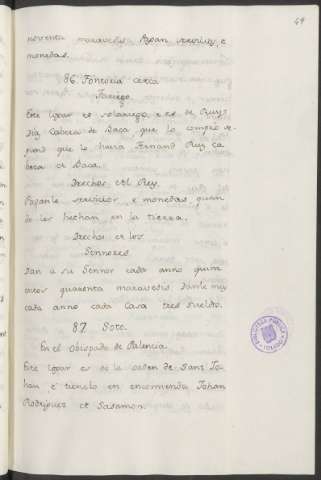 49
noventa maravedis. Pagan servicios e
monedas.
86. Fontoria cerca
Tariego.
Este logar es solariego, e es de Ruy
Dia Cabeza de Baca que lo compro de
pues que lo huvia Fernand Ruiz Ca
beza de Baca.
Drechos del Rey.
Paganle servicios, e monedas, quan
do los hechan en la tierra.
Drechos de los
Sennores.
Dan a su Sennor cada anno quini
entos quarenta maravedis. Danle mas
cada anno cada Casa tres sueldos.
87. Soto.
En el Obispado de Palencia.
Este logar es de la orden de Sant Jo-
han e tienelo en encomienda Johan
Rodriguez de Sasamon.
BIBLIOTECA PUBLICA
TOLEDO